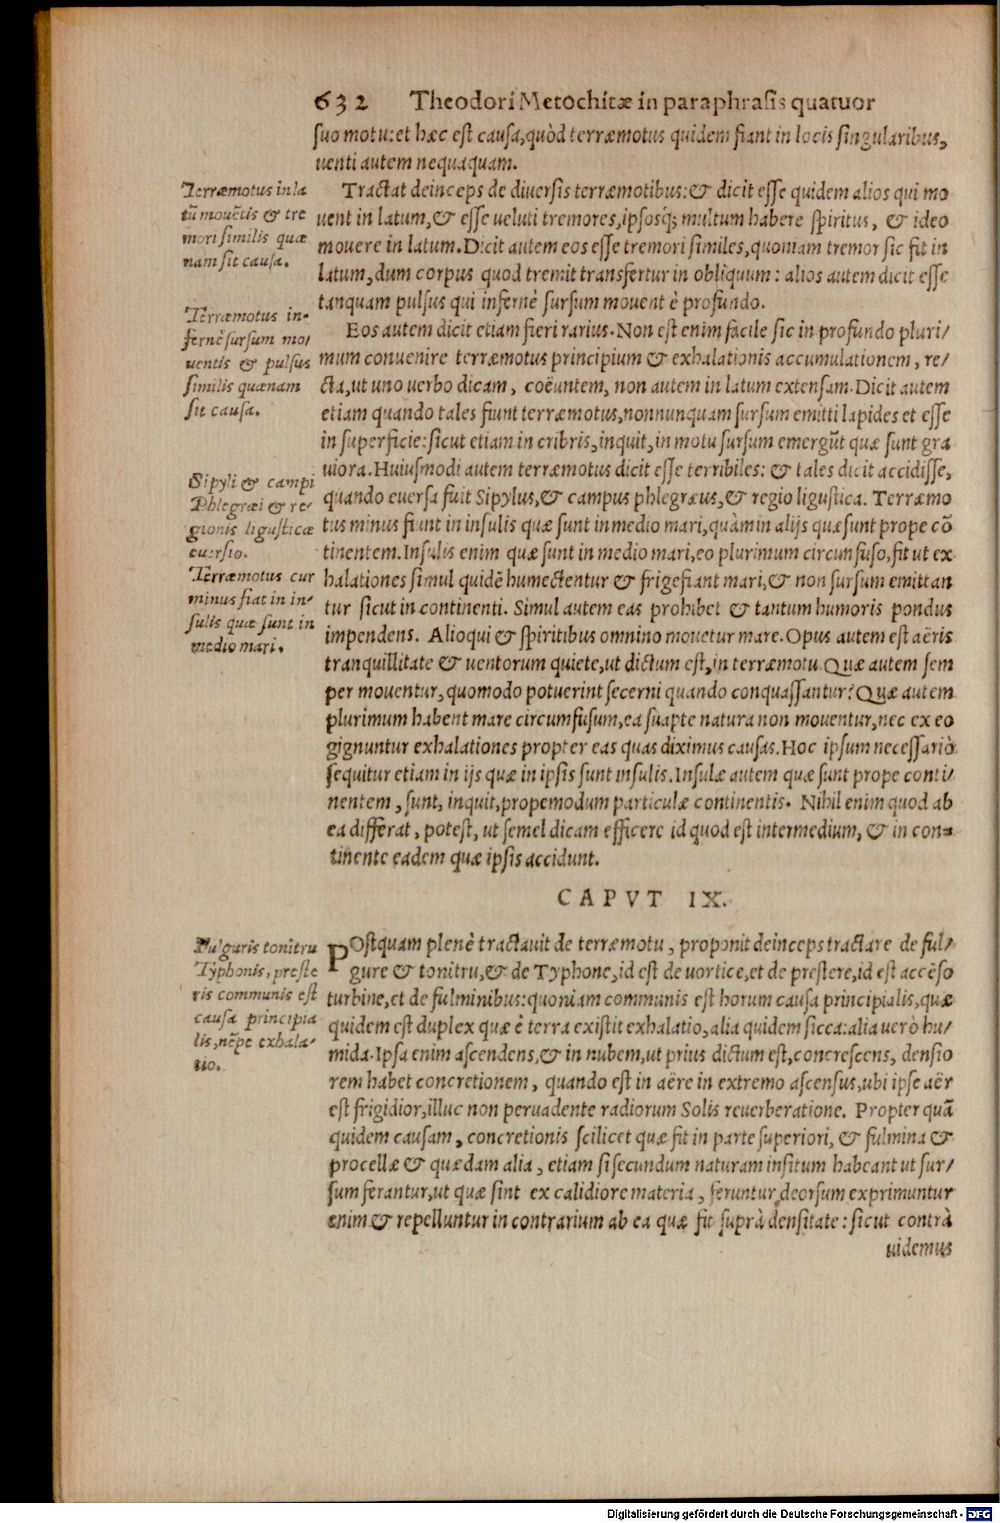 632 Theodori Metochitæ in paraphrasis quatuor
suo motu: et hæc est causa, quòd terræmotus quidem fiant in locis singularibus,
uenti autem nequaquam.
Terræmotus in la
tũ mouẽtis & tre
mori similis quæ
nam sit causa.
Tractat deinceps de diuersis terræmotibus: & dicit esse quidem alios qui mo
uent in latum, & esse ueluti tremores, ipsosq; multum habere spiritus, & ideo
mouere in latum. Dicit autem eos esse tremori similes, quoniam tremor sic fit in
latum, dum corpus quod tremit transfertur in obliquum: alios autem dicit esse
tanquam pulsus qui infernè sursum mouent è profundo.
Terræmotus in-
fernè sursum mo/
uentis & pulsus
similis quænam
sit causa.
Eos autem dicit etiam fieri rarius. Non est enim facile sic in profundo pluri/
mum conuenire terræmotus principium & exhalationis accumulationem, re/
cta, ut uno uerbo dicam, coëuntem, non autem in latum extensam. Dicit autem
etiam quando tales fiunt terræmotus, nonnunquam sursum emitti lapides et esse
in superficie: sicut etiam in cribris, inquit, in motu sursum emergũt quæ sunt gra
uiora. Huiusmodi autem terræmotus dicit esse terribiles: & tales dicit accidisse,
Sipyli & campi
Phlegræi & re-
gionis ligusticæ
euersio.
quando euersa fuit Sipylus, & campus phlegræus, & regio ligustica. Terræmo
tus minus fiunt in insulis quæ sunt in medio mari, quàm in alijs quæ sunt prope cõ
tinentem. Insulis enim quæ sunt in medio mari, eo plurimum circunfuso, fit ut ex
Terræmotus cur
minus fiat in in-
sulis quæ sunt in
medio mari.
halationes simul quidẽ humectentur & frigefiant mari, & non sursum emittan
tur sicut in continenti. Simul autem eas prohibet & tantum humoris pondus
impendens. Alioqui & spiritibus omnino mouetur mare. Opus autem est aëris
tranquillitate & uentorum quiete, ut dictum est, in terræmotu. Quæ autem sem
per mouentur, quomodo potuerint secerni quando conquassantur? Quæ autem
plurimum habent mare circumfusum, ea suapte natura non mouentur, nec ex eo
gignuntur exhalationes propter eas quas diximus causas. Hoc ipsum necessariò
sequitur etiam in ijs quæ in ipsis sunt insulis. Insulæ autem quæ sunt prope conti/
nentem, sunt, inquit, propemodum particulæ continentis. Nihil enim quod ab
ea differat, potest, ut semel dicam efficere id quod est intermedium, & in con-
tinente eadem quæ ipsis accidunt.
CAPVT IX.
Fulguris tonitru
Typhonis, preste
ris communis est
causa principia
lis, nẽpe exhala-
tio.
POstquam plenè tractauit de terræmotu, proponit deinceps tractare de ful/
gure & tonitru, & de Typhone, id est de uortice, et de prestere, id est accẽso
turbine, et de fulminibus: quoniam communis est horum causa principialis, quæ
quidem est duplex quæ è terra existit exhalatio, alia quidem sicca: alia uerò hu/
mida. Ipsa enim ascendens, & in nubem, ut prius dictum est, concrescens, densio
rem habet concretionem, quando est in aëre in extremo ascensus, ubi ipse aër
est frigidior, illuc non peruadente radiorum Solis reuerberatione. Propter quã
quidem causam, concretionis scilicet quæ fit in parte superiori, & fulmina &
procellæ & quædam alia, etiam si secundum naturam insitum habeant ut sur/
sum ferantur, ut quæ sint ex calidiore materia, feruntur deorsum exprimuntur
enim & repelluntur in contrarium ab ea quæ fit suprà densitate: sicut contrà
uidemus
Digitalisierung gefördert durch die Deutsche Forschungsgemeinschaft - DFG